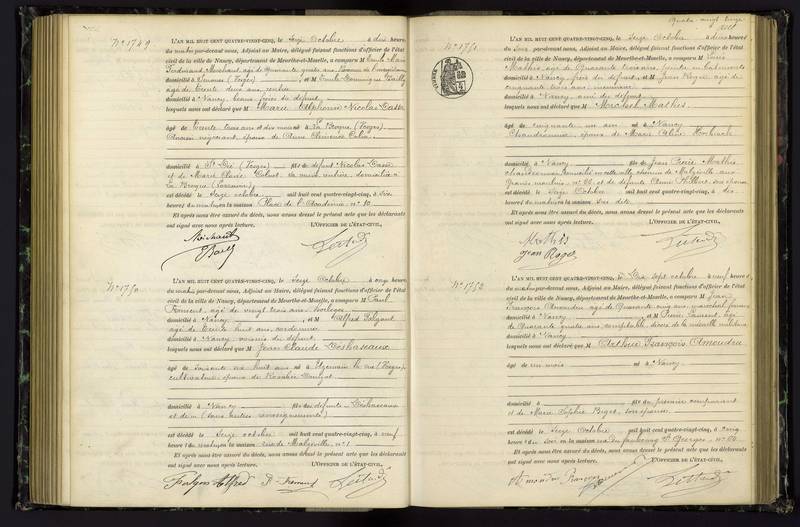 N° 1749
L'AN MIL HUIT CENT QUATRE-VINGT-CINQ, le Seize Octobre à dix heures
du matin par-devant nous, Adjoint au Maire, délégué faisant fonctions d'officier de l'état
civil de la ville de Nancy, département de Meurthe-et-Moselle, a comparu M Emile Marie
Ferdinand Michaut, âgé de quarante quatre ans,
domicilié à (Vosges) , et M Emile Dominique Bailly
âgé de trente deux ans, rentier
domicilié à Nancy, beau frère du défunt,
lesquels nous ont déclaré que M Marie Alphonse Nicolas
âgé de trente trois ans et dix mois né à La Broque (Vosges)
ancien négociant, époux de Anne Clémence
domicilié à St Dié (Vosges) fils de défunt Nicolas
et de Marie sa veuve, rentière, domiciliée à
La Broque (Lorraine)
est décédé le Seize octobre mil huit cent quatre-vingt-cinq, à six
heures du matin, en la maison Place de l'Académie n° 10
Et après nous être assuré du décès, nous avons dressé le présent acte que les déclarants
ont signé avec nous après lecture. L'OFFICIER DE L'ÉTAT-CIVIL,
Michaut
N° 1750
L'AN MIL HUIT CENT QUATRE-VINGT-CINQ, le Seize Octobre à onze heures
du matin par-devant nous, Adjoint au Maire, délégué faisant fonctions d'officier de l'état
civil de la ville de Nancy, département de Meurthe-et-Moselle, a comparu M Paul
Froment, âgé de vingt trois ans, horloger
domicilié à Nancy , et M Alfred
âgé de trente huit ans, cordonnier
domicilié à Nancy voisins du défunt
lesquels nous ont déclaré que M Jean Claude Deshaseaux
âgé de soixante six huit ans né à (Vosges)
cultivateur époux de Rosalie
domicilié à Nancy fils des défunts Deshaseaux
et de (sans autres renseignements)
est décédé le Seize octobre mil huit cent quatre-vingt-cinq, à neuf
heures du matin, en la maison rue de Malzéville n° 1
Et après nous être assuré du décès, nous avons dressé le présent acte que les déclarants
ont signé avec nous après lecture. L'OFFICIER DE L'ÉTAT-CIVIL,
Alfred P. Froment
Quatre vingt
N° 1751
L'AN MIL HUIT CENT QUATRE-VINGT-CINQ, le Seize Octobre à deux heures
du soir par-devant nous, Adjoint au Maire, délégué faisant fonctions d'officier de l'état
civil de la ville de Nancy, département de Meurthe-et-Moselle, a comparu M Louis
Mathis âgé de quarante trois ans, peintre en bâtiments
domicilié à Nancy frère du défunt , et M Jean Roger âgé de
cinquante trois ans menuisier
domicilié à Nancy ami du défunt
lesquels nous ont déclaré que M Joseph Mathis
âgé de cinquante un ans né à Nancy
Chaudronnier, époux de Marie
domicilié à Nancy fils de Jean Mathis
chaudronnier domicilié en cette ville, chemin de Malzéville aux
Grands moulins n° et de défunte Anne son épouse
est décédé le Seize Octobre mil huit cent quatre-vingt-cinq, à dix
heures du matin, en la maison sus dite
Et après nous être assuré du décès, nous avons dressé le présent acte que les déclarants
ont signé avec nous après lecture. L'OFFICIER DE L'ÉTAT-CIVIL,
Mathis
Jean Roger
N° 1752
L'AN MIL HUIT CENT QUATRE-VINGT-CINQ, le Dix sept octobre à neuf heures
du matin par-devant nous, Adjoint au Maire, délégué faisant fonctions d'officier de l'état
civil de la ville de Nancy, département de Meurthe-et-Moselle, a comparu M Jean
François Amondru âgé de quarante cinq ans, maréchal ferrant
domicilié à Nancy , et M Pierre Laurent, âgé
de quarante quatre ans, comptable,
domicilié à Nancy
lesquels nous ont déclaré que M Arthur François Amondru
âgé de un mois né à Nancy
domicilié à fils du premier comparant
et de Marie Sophie son épouse
est décédé le Seize Octobre mil huit cent quatre-vingt-cinq, à cinq
heures du soir en la maison rue du faubourg St Georges n°
Et après nous être assuré du décès, nous avons dressé le présent acte que les déclarants
ont signé avec nous après lecture. L'OFFICIER DE L'ÉTAT-CIVIL,
Amondru